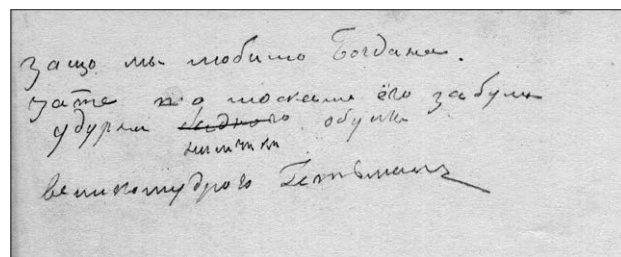 защо мы любимо Богдана.
зате що москали ёго забули
у дурни бидного обули
нимчики
великомудрого Гетьмана